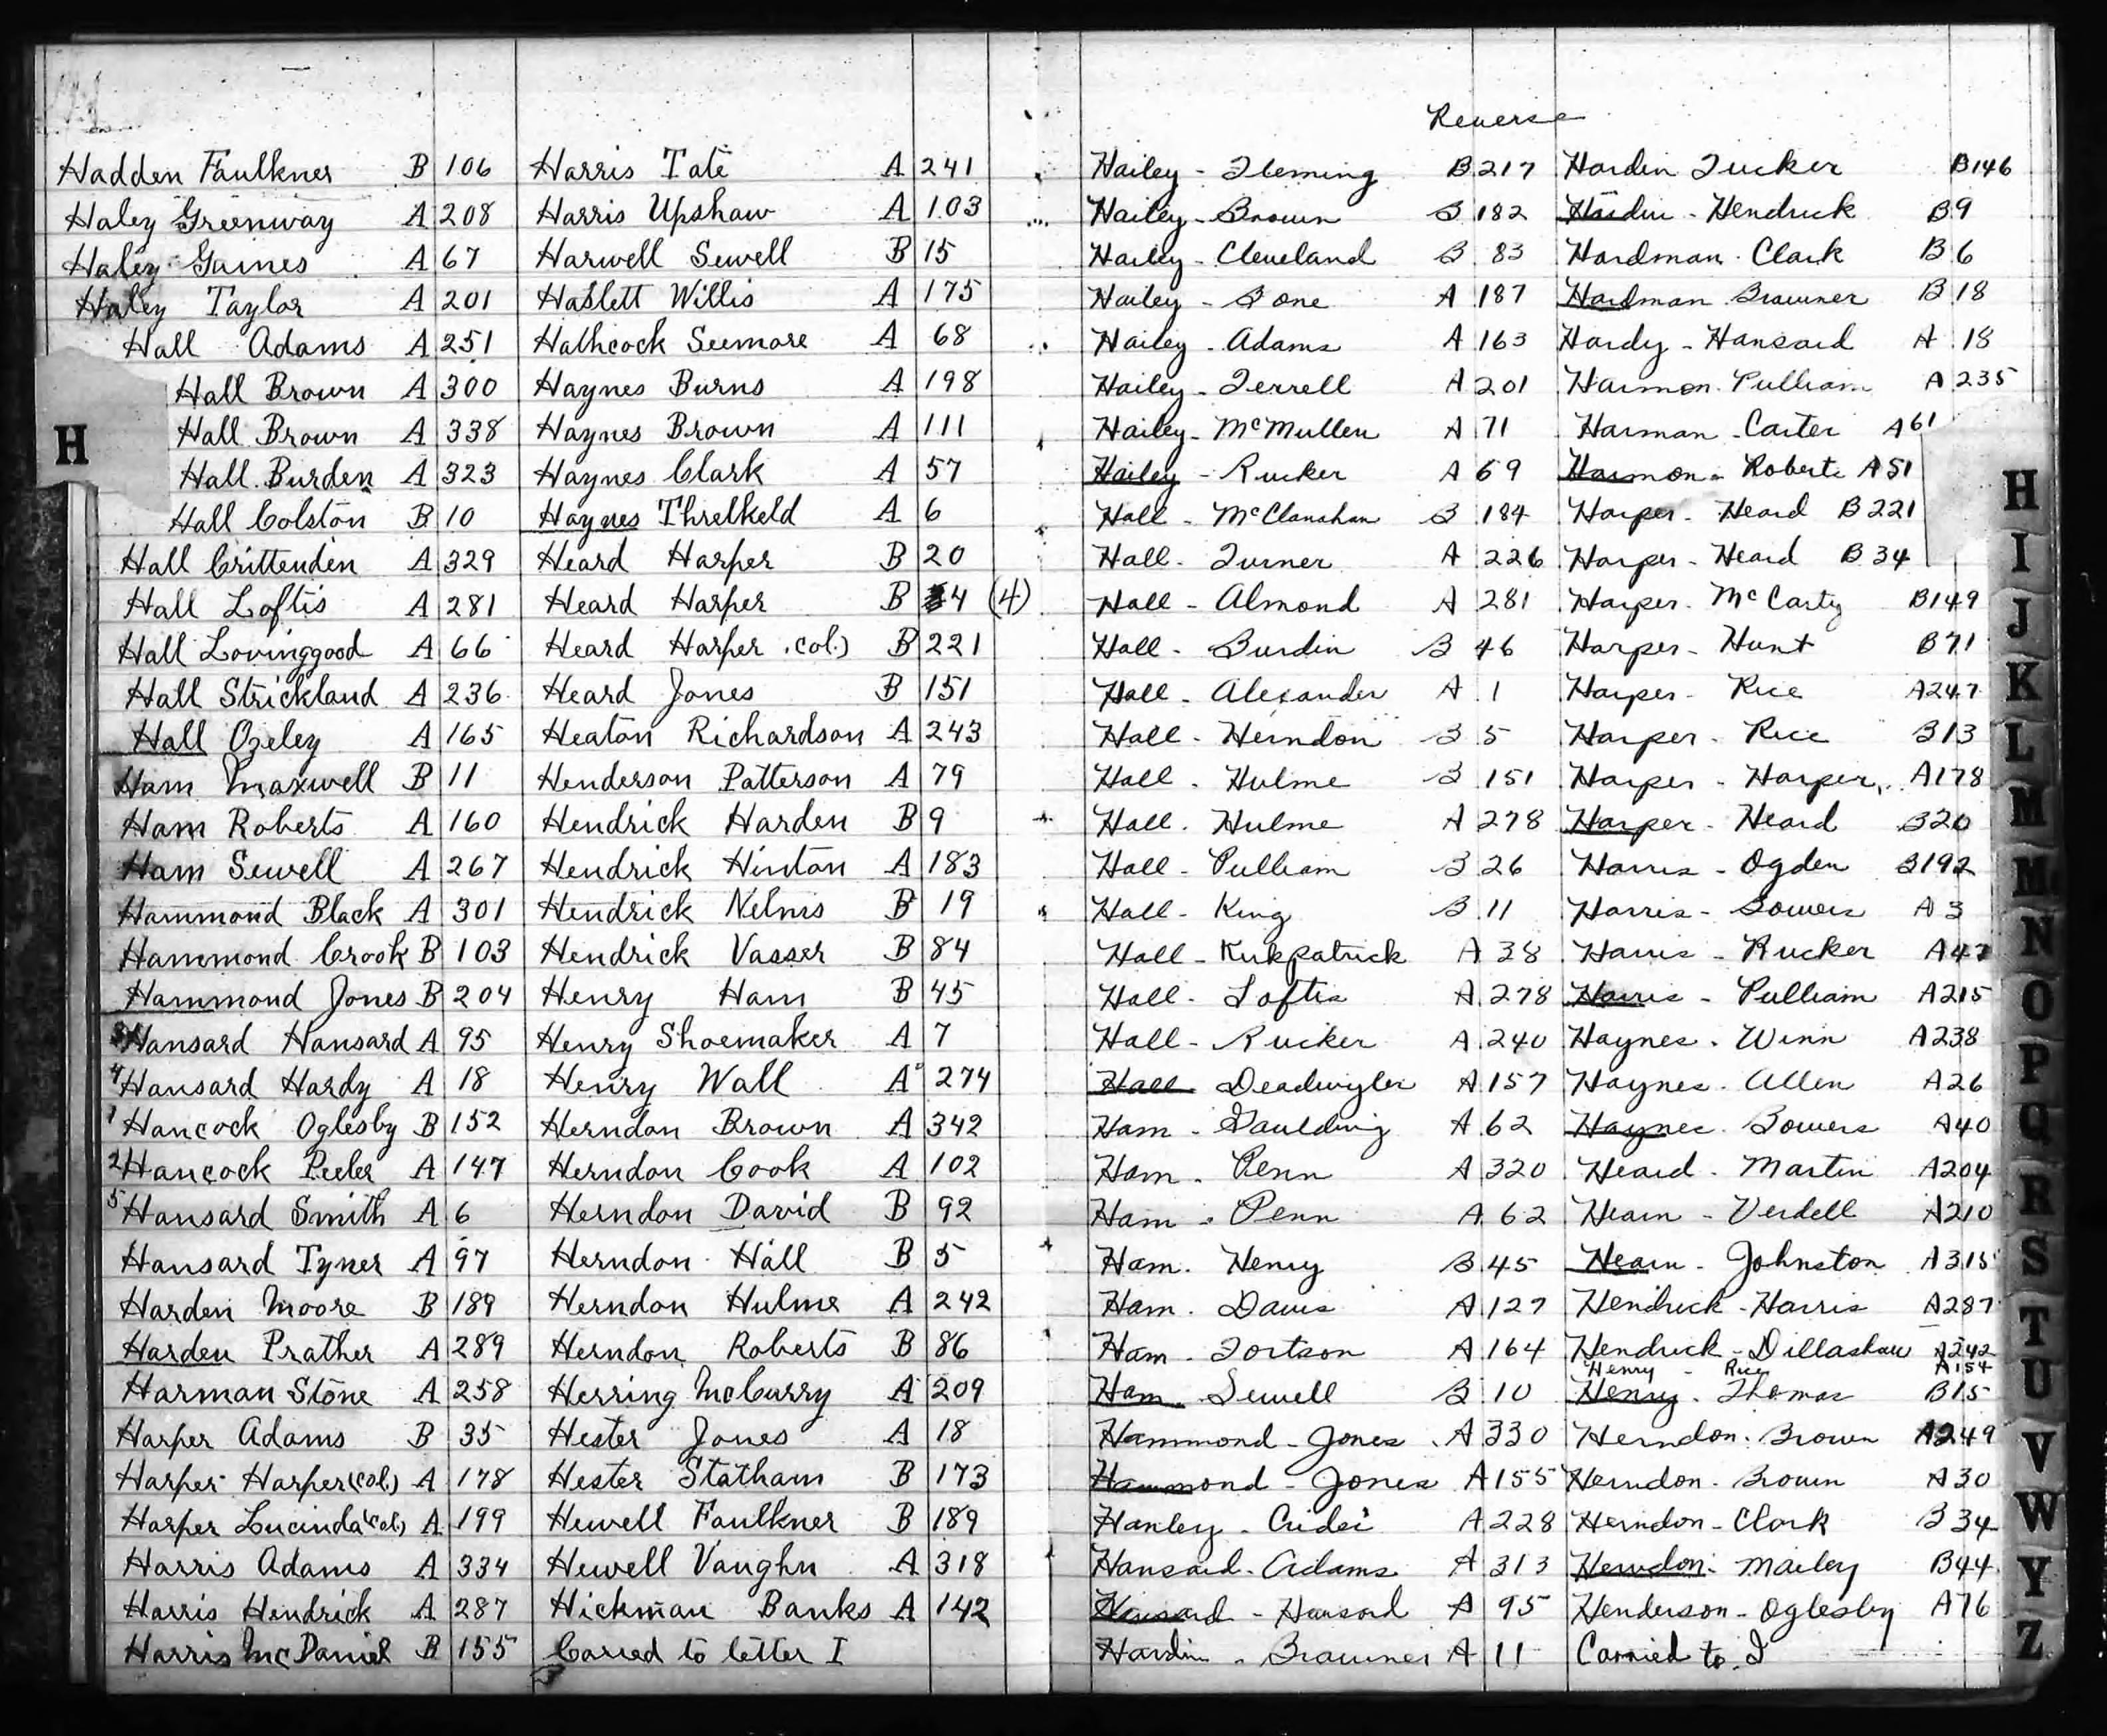 Hadden Faulkner B 106
Haley Greenway A 208
Haley Gaines A 67
Haley Taylor A 201
Hall Adams A 251
Hall Brown A 300
Hall Brown A 338
H
Hall Burden A 323
Hall Colston B 10
Hall Crittenden A 329
Hall Loftis A 281
Hall Lovinggood A 66
Hall Strickland A 236
Hall Ozeley A 165
Ham Maxwell B 11
Ham Roberts A 160
Ham Sewell A 267
Hammond Black A 301
Hammond Crook B 103
Hammond Jones B 204
3 Hansard Hansard A 95
4 Hansard Hardy A 18
1 Hancock Oglesby B 152
2 Hancock Peeler A 147
5 Hansard Smith A 6
Hansard Tyner A 97
Harden Moore B 189
Harden Prather A 289
Harman Stone A 258
Harper Adams B 35
Harper Harper (col.) A 178
Harper Lucinda (col.) A 199
Harris Adams A 334
Harris Hendrick A 287
Harris McDaniel B 155
Harris Tate A 241
Harris Upshaw A 103
Harwell Sewell B 15
Haslett Willis A 175
Hathcock Seemore A 68
Haynes Burns A 198
Haynes Brown A 111
Haynes Clark A 57
Haynes Threlkeld A 6
Heard Harper B 20
Heard Harper B 4 (4)
Heard Harper .col.) B 221
Heard Jones B 151
Heaton Richardson A 243
Henderson Patterson A 79
Hendrick Harden B 9
Hendrick Hinton A 183
Hendrick Nelms B 19
Hendrick Vasser B 84
Henry Ham B 45
Henry Shoemaker A 7
Henry Wall A 274
Herndon Brown A 342
Herndon Cook A 102
Herndon David B 92
Herndon Hall B 5
Herndon Hulme A 242
Herndon Roberts B 86
Herring McCurry A 209
Hester Jones A 18
Hester Statham B 173
Hewell Faulkner B 189
Hewell Vaughn A 318
Hickman Banks A 142
Carred to letter I
Reverse
Hailey - Fleming B 217
Hailey - Brown B 182
Hailey - Cleveland B 83
Hailey - Bone A 187
Hailey - Adams A 163
Hailey - Terrell A 201
Hailey - McMullen A 71
Hailey - Rucker A 69
Hall - McClanahan B 184
Hall - Turner A 226
Hall - Almond A 281
Hall - Burdin B 46
Hall - Alexander A 1
Hall - Herndon B 5
Hall - Hulme B 151
Hall - Hulme A 278
Hall - Pulliam B 26
Hall - King B 11
Hall - Kirkpatrick A 38
Hall - Loftis A 278
Hall - Rucker A 240
Hall Deadwyler A 157
Ham - Gaulding A 62
Ham - Penn A 320
Ham - Penn A 62
Ham - Henry B 45
Ham - Davis A 127
Ham - Fortson A 164
Ham - Sewell B 10
Hammond - Jones A 330
Hammond - Jones A 155
Hanley - A 228
Hansard - Adams A 313
Hansard - Hansard A 95
Hardin - Brawner A 11
Hardin Tucker B 146
Hardin - Hendrick B 9
Hardman - Clark B 6
Hardman Brawner B 18
Hardy - Hansard A 18
Harmon - Pulliam A 235
Harman - Carter A 61
Harmon - Roberts A 51
Harper - Heard B 221
Harper - Heard B 34
Harper - McCarty B 149
Harper - Hunt B 71
Harper - Rice A 247
Harper - Rice B 13
Harper - Harper A 178
Harper - Heard B 20
Harris - Ogden B 192
Harris - Bowers A 3
Harris - Rucker A 47
Harris - Pulliam A 215
Haynes - Winn A 238
Haynes - Allen A 26
Haynes - Bowers A 40
Heard - Martin A 204
Hearn - Verdell A 210
Hearn - Johnston A 315
Hendrick - Harris A 287
Hendrick - Dillashaw A 242
Henry - Rice A 154
Henry - Thomas B 15
Herndon - Brown A 249
Herndon - Brown A 30
Herndon - Clark B 34
Herndon - Mailey B 44
Henderson - Oglesby A 76
Carried to I
H
I
J
K
L
M
M
N
O
P
Q
R
S
T
U
V
W
Y
Z